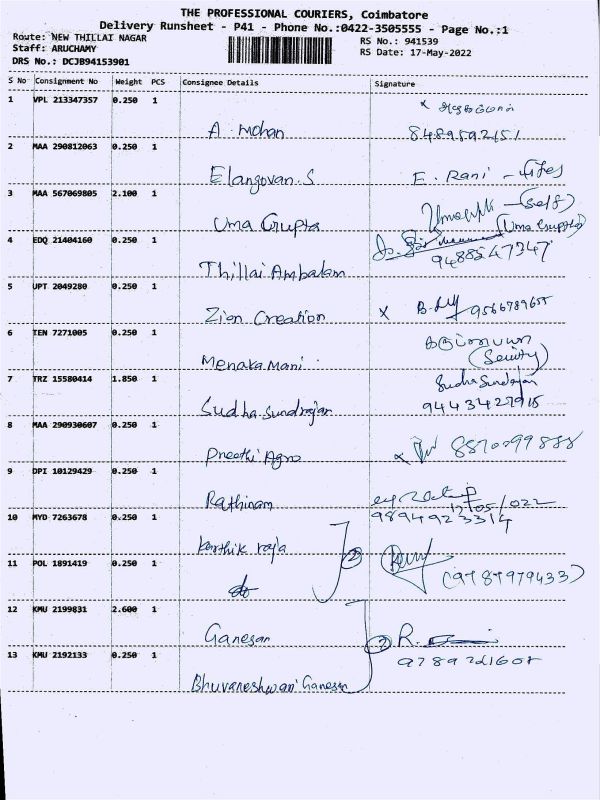 THE PROFESSIONAL COURIERS, Coimbatore
Delivery Runsheet - P41 - Phone No.:0422-3505555 - Page No.:1
Route: NEW THILLAI NAGAR
Staff: ARUCHAMY
DRS No.: DCJB94153901
RS No.: 941539
RS Date: 17-May-2022
S No Consignment No Weight PCS Consignee Details Signature
1 VPL 213347357 0.250 1
A Mohan 8489592151
2 MAA 290812063 0.250 1
Elangovan.S E. Rani -
3 MAA 567069805 2.100 1
Uma Gupta (Self)
(Uma Gupta)
4 EDQ 21404160 0.250 1
Thillai Ambalam 9488547347
5 UPT 2049280 0.250 1
Zion Creation X 9566789605
6 TEN 7271005 0.250 1
Menaka Mani (Security)
7 TRZ 15580414 1.850 1 Sudha Sundrajan
Sudha Sundrajan 9443427915
8 MAA 290930607 0.250 1
Preethi Agro x
9 DPI 10129429 0.250 1
Rathinam 17/05/022
9894923314
10 MYD 7263678 0.250 1
Karthik raja 2
11 POL 1891419 0.250 1
(9789979433)
12 KMU 2199831 2.600 1
Ganesan 2 R.
13 KMU 2192133 0.250 1 9789721605
Bhuvaneshwari Ganesan